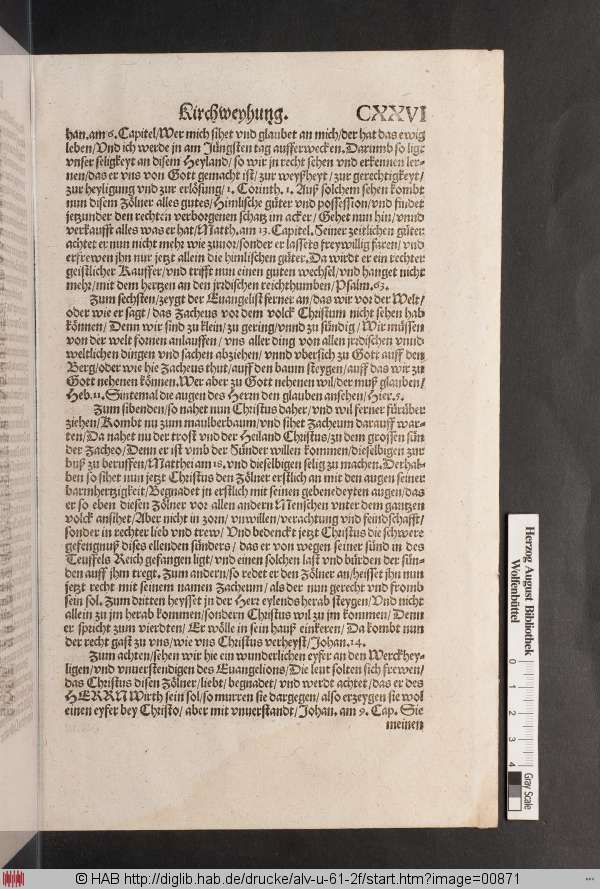 Kirchweyhung. CXXVI
han. am 6. Capitel/Wer mich sihet vnd glaubet an mich/der hat das ewig
leben/Vnd ich werde jn am Jüngsten tag aufferwecken. Darumb so ligt
vnser seligkeyt an disem Heyland/so wir jn recht sehen vnd erkennen ler-
nen/das er vns von Gott gemacht ist/zur weyßheyt/zur gerechtigkeyt/
zur heyligung vnd zur erlösung/1. Corinth. 1. Auß solchem sehen kombt
nun disem Zölner alles gutes/Himlische güter vnd possession/vnd findet
jetzunder den rechten verborgenen schatz im acker/Gehet nun hin/vnnd
verkaufft alles was er hat/Matth. am 13. Capitel. Seiner zeitlichen güter
achtet er nun nicht mehr wie zuuor/sonder er lassets freywillig faren/vnd
erfrewen jhn nur jetzt allein die himlischen güter. Da wirdt er ein rechter
geistlicher Kauffer/vnd trifft nun einen guten wechsel/vnd hanget nicht
mehr/mit dem hertzen an den jrdischen reichthumben/Psalm. 63.
Zum sechsten/zeygt der Euangelist ferner an/das wir vor der Welt/
oder wie er sagt/das Zacheus vor dem volck Christum nicht sehen hab
können/Denn wir sind zu klein/zu gering/vnnd zu sündig/Wir müssen
von der welt fornen anlauffen/vns aller ding von allen jrdischen vnnd
weltlichen dingen vnd sachen abziehen/vnnd vbersich zu Gott auff den
Berg/oder wie hie Zacheus thut/auff den baum steygen/auff das wir zu
Gott nehenen können. Wer aber zu Gott nehenen wil/der muß glauben/
Heb. 11. Sintemal die augen des Herrn den glauben ansehen/Hier. 5.
Zum sibenden/so nahet nun Christus daher/vnd wil ferner fürüber
ziehen/Kombt nu zum maulberbaum/vnd sihet Zacheum darauff war-
ten/Da nahet nu der trost vnd der Heiland Christus/zu dem grossen sün
der Zacheo/Denn er ist vmb der Sünder willen kommen/dieselbigen zur
buß zu beruffen/Matthei am 18. vnd dieselbigen selig zu machen. Derhal-
ben so sihet nun jetzt Christus den Zölner erstlich an mit den augen seiner
barmhertzigkeit/Begnadet jn erstlich mit seinen gebenedeyten augen/das
er so eben diesen Zölner vor allen andern Menschen vnter dem gantzen
volck ansihet/Aber nicht in zorn/vnwillen/verachtung vnd feindschafft/
sonder in rechter lieb vnd trew/Vnd bedenckt jetzt Christus die schwere
gefengnuß dises ellenden sünders/das er von wegen seiner sünd in des
Teuffels Reich gefangen ligt/vnd einen solchen last vnd bürden der sün-
den auff jhm tregt. Zum andern/so redet er den Zölner an/heisset jhn nun
jetzt recht mit seinem namen Zacheum/als der nun gerecht vnd fromb
sein sol. Zum dritten heysset jn der Herr eylends herab steygen/Vnd nicht
allein zu jm herab kommen/sondern Christus wil zu jm kommen/Denn
er spricht zum vierdten/Er wölle in sein hauß einkeren/Da kombt nun
der recht gast zu vns/wie vns Christus verheyst/Johan. 14.
Zum achten/sehen wir hie ein wunderlichen eyfer an den Werckhey-
ligen/vnd vnuerstendigen des Euangelions/Die leut solten sich frewen/
das Christus disen Zölner/liebt/begnadet/vnd werdt achtet/das er des
HERRN Wirth sein sol/so murren sie dargegen/also erzeygen sie wol
einen eyfer bey Christo/aber mit vnuerstandt/Johan. am 9. Cap. Sie
meinen
Herzog August Bibliothek
Wolfenbüttel
0 1 2 3 4
Gray Scale
© HAB http://diglib.hab.de/drucke/alv-u-61-2f/start.htm?image=00871